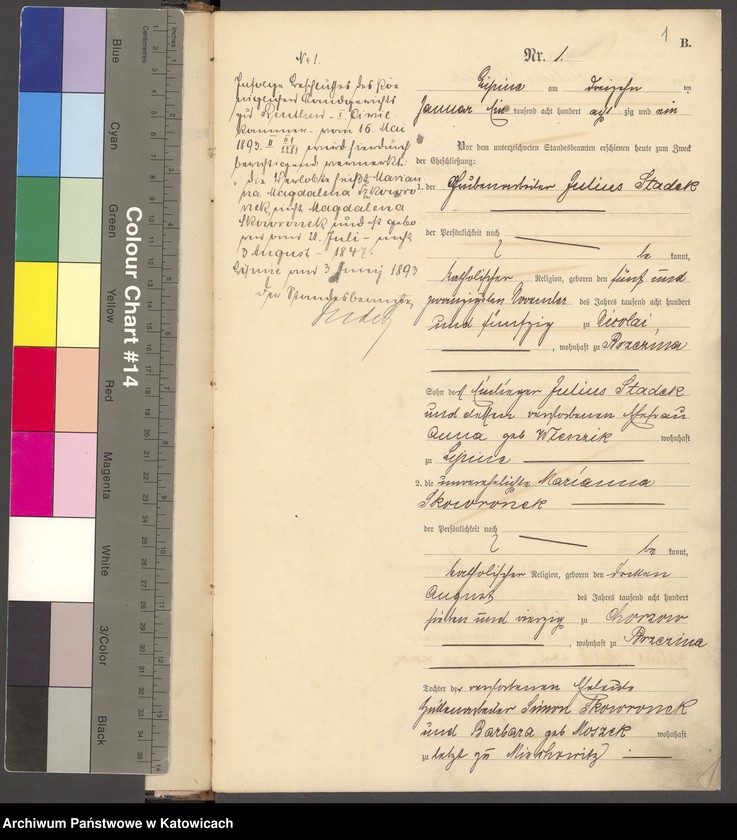 Colour Chart #14
Blue
Cyan
Green
Yellow
Red
Magenta
White
3/Color
Black
Centimetres
Inches
1
B.
Nr. 1.
No 1.
Infolge Beschlusses des Kö-
niglichen Landgerichts
zu Beuthen – I Civil
Kammer – vom 16. Mai
1893. wird hierdurch
berichtigend vermerkt:
die Verlobte heißt Marian
na Magdalena Skowro
nek, nicht Magdalena
Skowronek und ist gebo
ren am 21. Juli – nicht
3 August – 1847.
Lipine am 3 Juny 1893
Der Standesbeamte,
Lipine am dreizehn ten
Januar ein tausend acht hundert acht zig und ein
Vor dem unterzeichneten Standesbeamten erschienen heute zum Zweck
der Eheschließung:
1. der Grubenarbeiter Julius Stadek
der Persönlichkeit nach
be kannt,
katholischer Religion, geboren den fünf und
zwanzigsten November des Jahres tausend acht hundert
und fünfzig zu Nicolai,
, wohnhaft zu Brzezina
Sohn des Einlieger Julius Stadek
und dessen verstorbenen Ehefrau
Anna geb wohnhaft
zu Lipine
2. die unverehelichte Marianna
Skowronek
der Persönlichkeit nach
be kannt,
katholischer Religion, geboren den dritten
August des Jahres tausend acht hundert
sieben und vierzig zu Chorzow
, wohnhaft zu Brzezina
Tochter der verstorbenen Eheleute
Hüttenarbeiter Simon Skowronek
und Barbara geb Moszek wohnhaft
zuletzt zu Miechowitz
Archiwum Państwowe w Katowicach